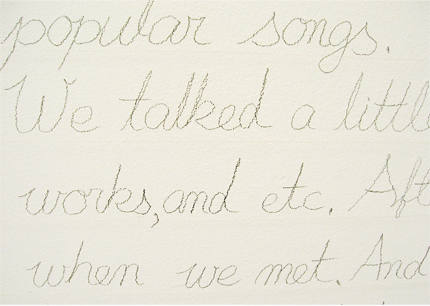 popular songs.
We talked a little
works,and etc. Aft
when we met. And